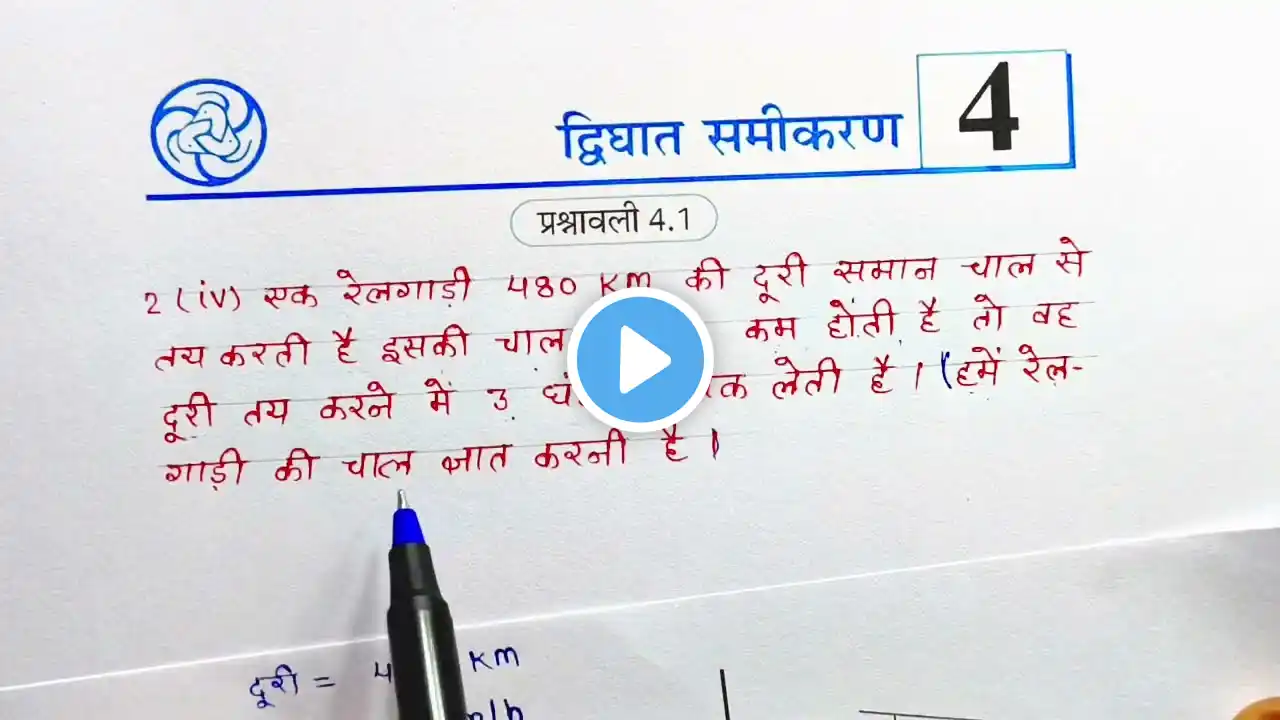 द्विघात समीकरण 4
प्रश्नावली 4.1
2 (iv) एक रेलगाड़ी 480 Km की दूरी समान चाल से
तय करती है इसकी चाल कम होती है तो वह
दूरी तय करने में 3 लेती है । (हमें रेल-
गाड़ी की चाल ज्ञात करनी है ।
दूरी = 4 KM